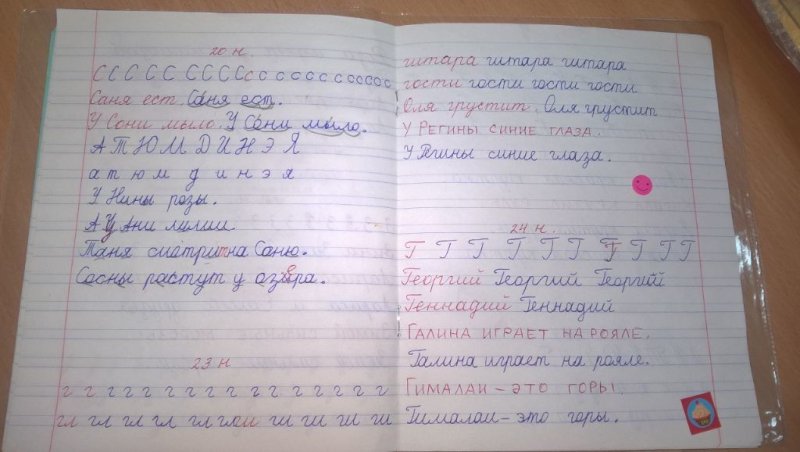 20 н.
С С С С С С С С С с с с с с с с с с с с
Саня ест. Саня ест.
У Сони мыло. У Сони мыло.
А Т Ю М Д И Н Э Я
а т ю м д и н э я
У Нины розы.
А у Ани лилии.
Таня смотрит на Саню.
Сосны растут у озера.
23 н
г г г г г г г г г г г г г г г
гл гл гл гл гл гли ги ги ги ги ги
гитара гитара гитара
гости гости гости гости
Оля грустит. Оля грустит
У РЕГИНЫ СИНИЕ ГЛАЗА.
У Регины синие глаза.
24 н.
Г Г Г Г Г Г Г Г Г Г
Георгий Георгий Георгий
Геннадий Геннадий
ГАЛИНА ИГРАЕТ НА РОЯЛЕ.
Галина играет на рояле.
ГИМАЛАИ – ЭТО ГОРЫ.
Гималаи – это горы.